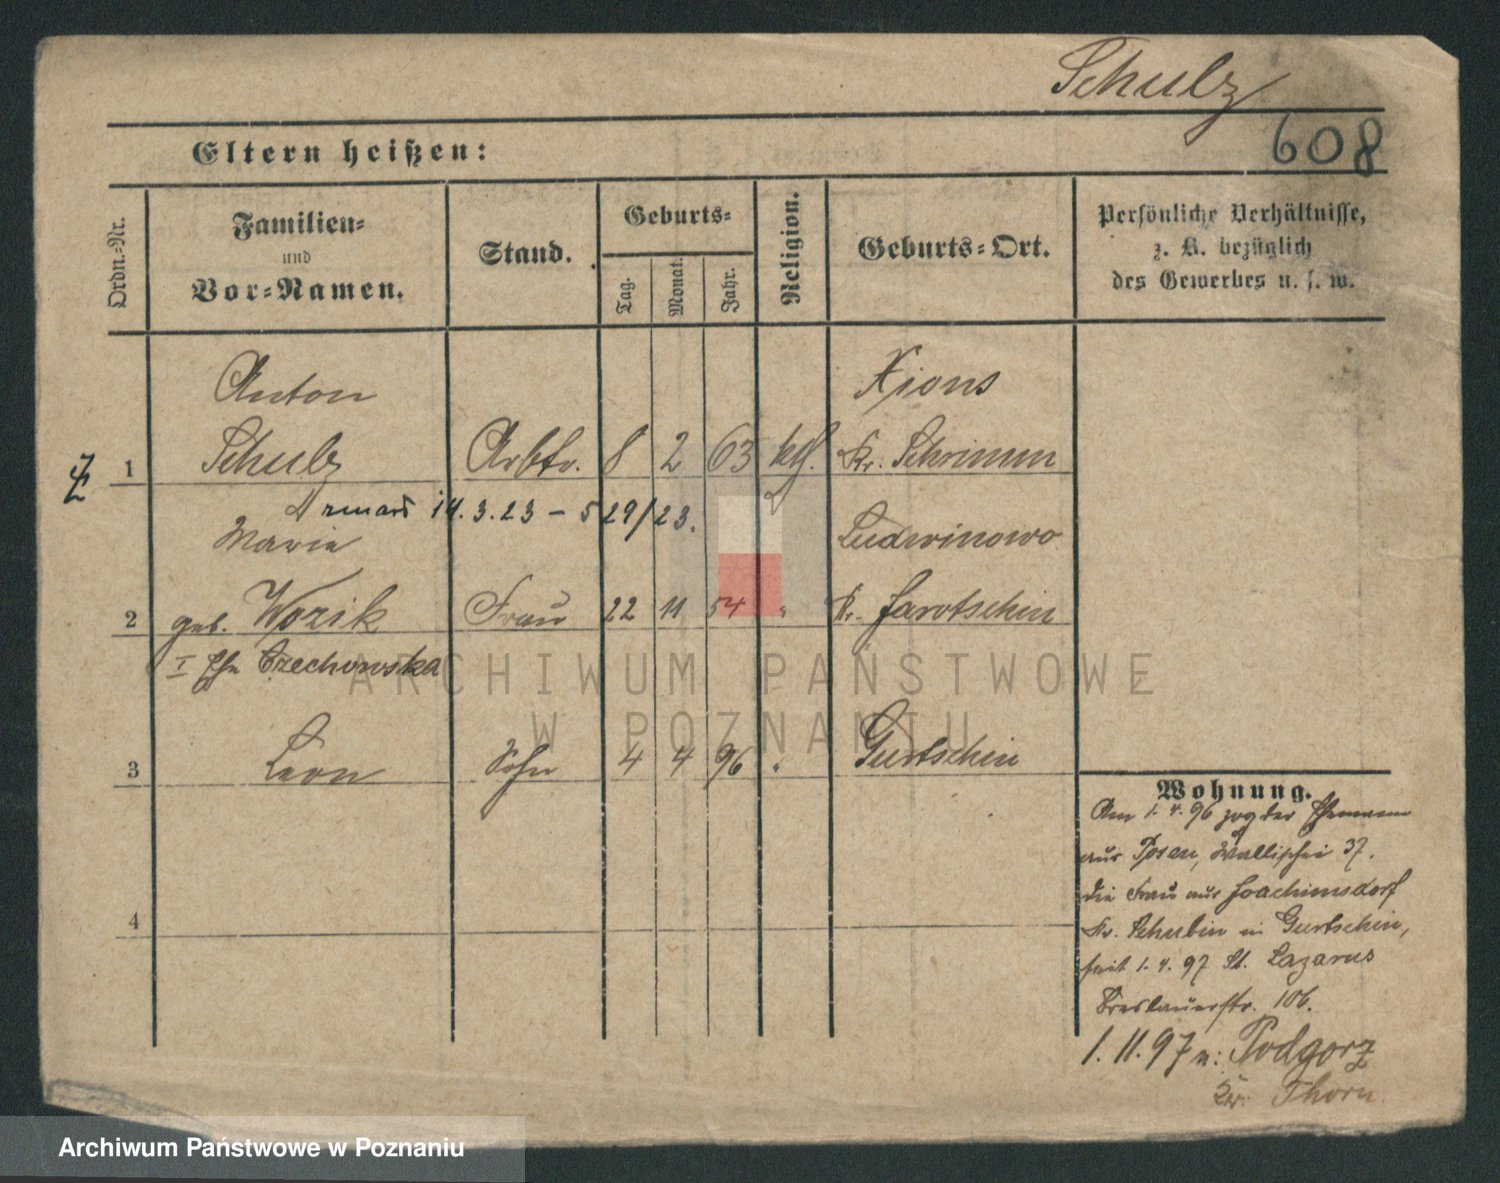 Schulz
608
Eltern heißen:
Ordn.-Nr.
Familien-
und
Vor-Namen.
Stand.
Geburts-
Tag.
Monat.
Jahr.
Religion.
Geburts-Ort.
Persönliche Verhältnisse,
z. B. bezüglich
des Gewerbes u. s. w.
Anton Xions
1 Schulz Arbtr. 8 2 63 kth. Kr. Schrimm
14.3.23 – 529/23.
Marie Ludwinowo
2 geb. Wozik Frau 22 11 54 " Kr. Jarotschin
I Ehe Czechowska
3 Leon Sohn 4 4 96 " Gurtschin
4
Wohnung.
Am 1.4.96 zog der Ehemann
aus Posen, Wallischei 37.
die Frau aus Joachimsdorf
Kr. Schubin in Gurtschin,
seit 1.4.97 St. Lazarus
Breslauerstr. 106.
1.11.97 n: Podgorz
Kr. Thorn
ARCHIWUM PAŃSTWOWE
W POZNANIU
Archiwum Państwowe w Poznaniu